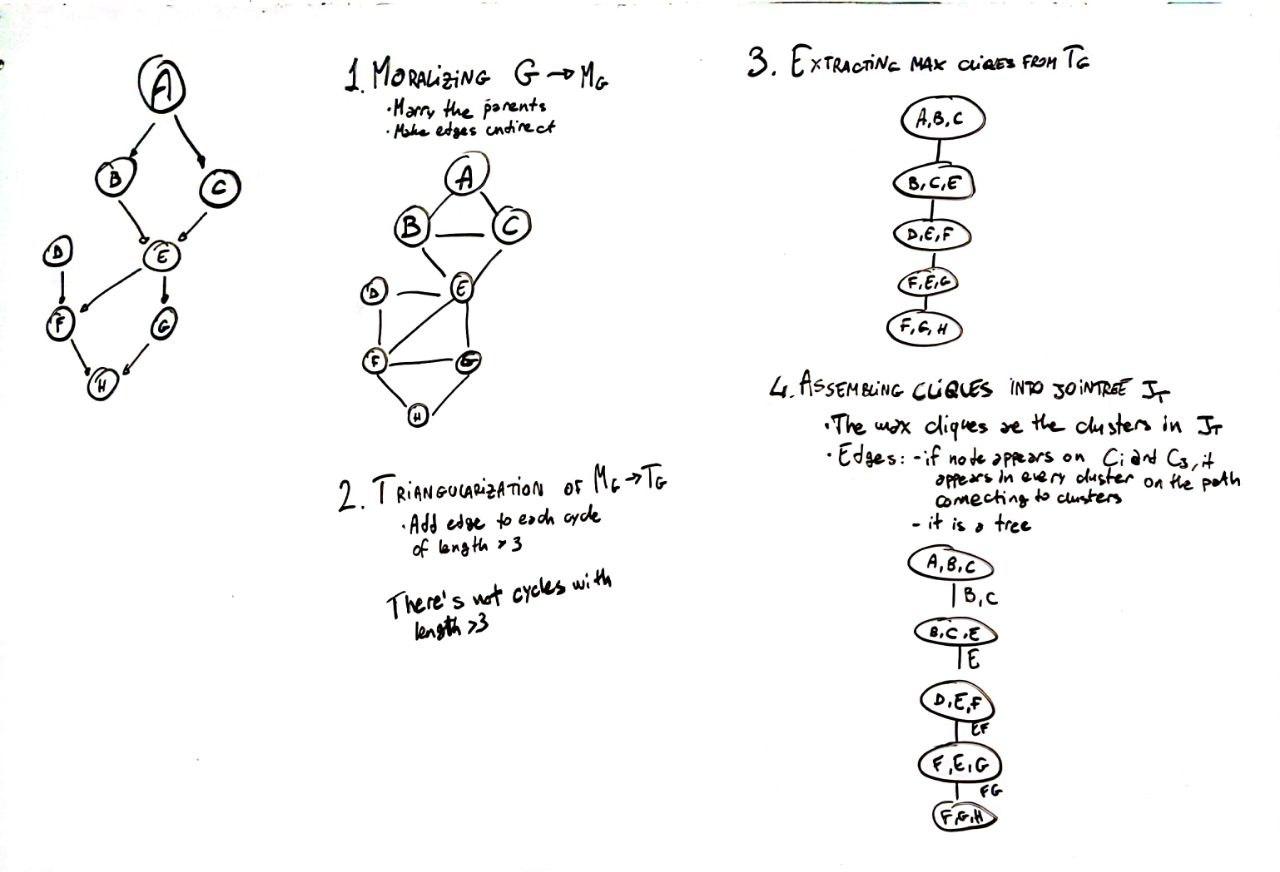 A
B
C
D
E
F
G
H
1. MORALIZING G → MG
• Marry the parents
• Make edges undirect
A
B
C
D
E
F
G
H
2. TRIANGULARIZATION OF MG → TG
• Add edge to each cycle
of length > 3
There's not cycles with
length >3
3. EXTRACTING MAX CLIQES FROM TG
A,B,C
B,C,E
D,E,F
F,E,G
F,G,H
4. ASSEMBLING CLIQUES INTO JOINTREE JT
• The max cliques are the clusters in JT
• Edges: - if node appears on Ci and CJ, it
appears in every cluster on the path
connecting to clusters
- it is a tree
A,B,C
B,C
B,C,E
E
D,E,F
EF
F,E,G
FG
F,G,H